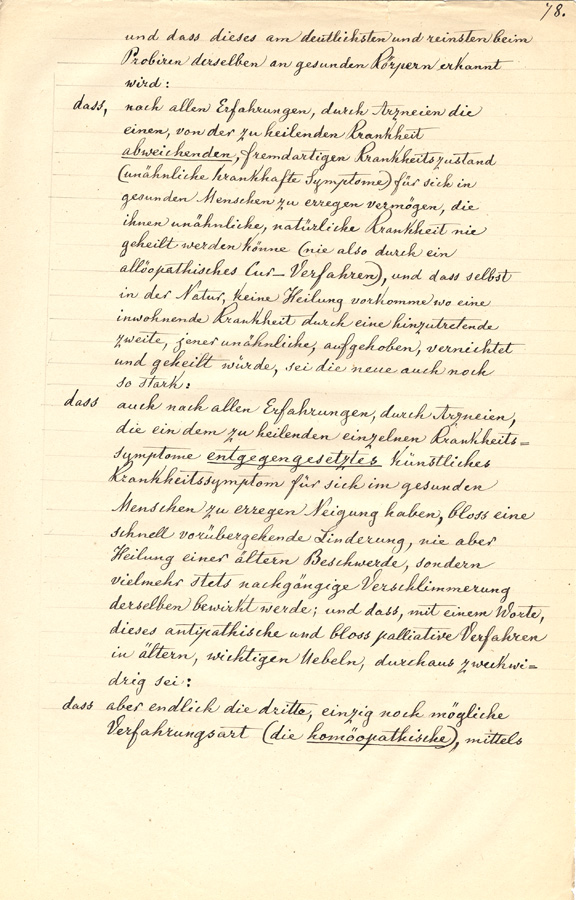 78.
und dass dieses am deutlichsten und reinsten beim
Probiren derselben an gesunden Körpern erkannt
wird:
dass, nach allen Erfahrungen, durch Arzneien die
einen, von der zu heilenden Krankheit
abweichenden, fremdartigen Krankheitszustand
(unähnliche krankhafte Symptome) für sich in
gesunden Menschen zu erregen vermögen, die
ihnen unähnliche, natürliche Krankheit nie
geheilt werden könne (nie also durch ein
allöopathisches Cur-Verfahren), und dass selbst
in der Natur, keine Heilung vorkomme wo eine
inwohnende Krankheit durch eine hinzutretende
zweite, jener unähnliche, aufgehoben, vernichtet
und geheilt würde, sei die neue auch noch
so stark:
dass auch nach allen Erfahrungen, durch Arzneien,
die ein dem zu heilenden einzelnen Krankheits=
symptome entgegengesetztes künstliches
Krankheitssymptom für sich im gesunden
Menschen zu erregen Neigung haben, bloss eine
schnell vorübergehende Linderung, nie aber
Heilung einer ältern Beschwerde, sondern
vielmehr stets nachgängige Verschlimmerung
derselben bewirkt werde; und dass, mit einem Worte,
dieses antipathische und bloss palliative Verfahren
in ältern, wichtigen Uebeln, durchaus zweckwi=
drig sei:
dass aber endlich die dritte, einzig noch mögliche
Verfahrungsart (die homöopathische), mittels